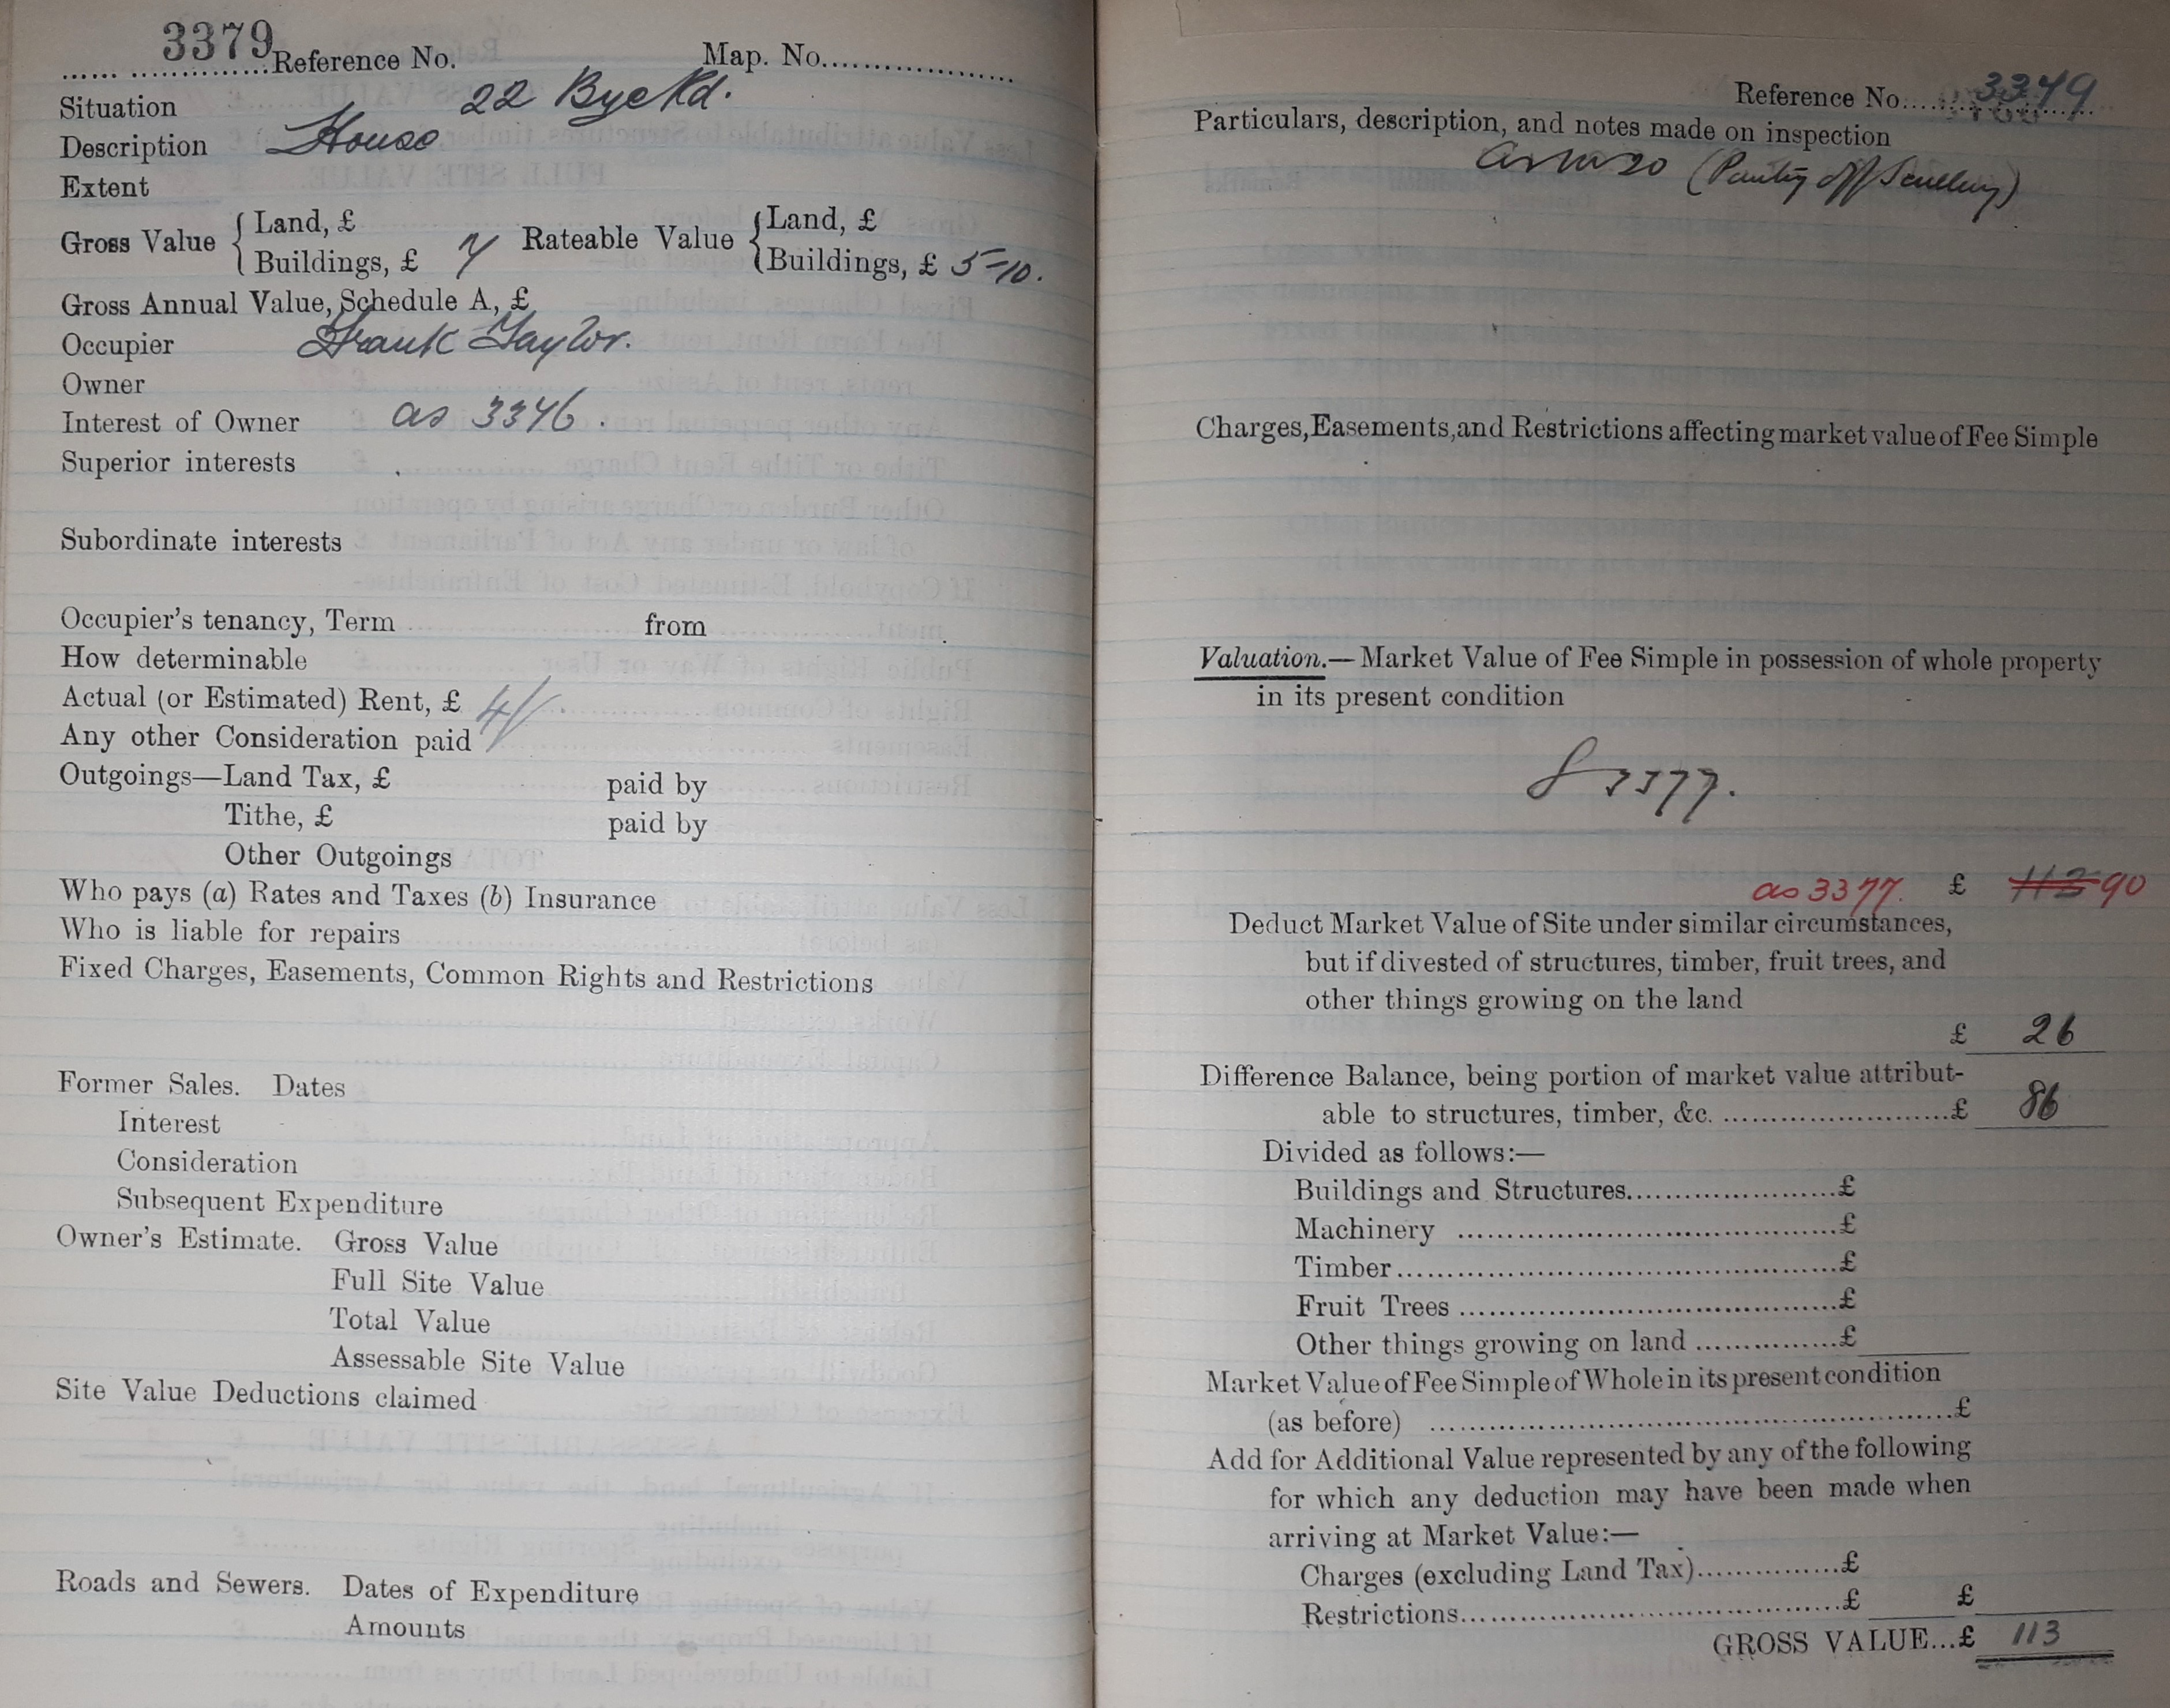 3379 Reference No. Map. No.
Situation 22 Bye Rd.
Description House
Extent
Gross Value { Land, £ Rateable Value { Land, £
Buildings, £ 7 Buildings, £ 5-10.
Gross Annual Value, Schedule A, £
Occupier Frank Taylor.
Owner
Interest of Owner as 3346.
Superior interests
Subordinate interests
Occupier's tenancy, Term from
How determinable
Actual (or Estimated) Rent, £ 4/
Any other Consideration paid
Outgoings—Land Tax, £ paid by
Tithe, £ paid by
Other Outgoings
Who pays (a) Rates and Taxes (b) Insurance
Who is liable for repairs
Fixed Charges, Easements, Common Rights and Restrictions
Former Sales. Dates
Interest
Consideration
Subsequent Expenditure
Owner's Estimate. Gross Value
Full Site Value
Total Value
Assessable Site Value
Site Value Deductions claimed
Roads and Sewers. Dates of Expenditure
Amounts
Reference No. 3379
Particulars, description, and notes made on inspection
(Pantry off Scullery)
Charges, Easements, and Restrictions affecting market value of Fee Simple
Valuation.—Market Value of Fee Simple in possession of whole property
in its present condition
3377.
as 3377. £ 113 90
Deduct Market Value of Site under similar circumstances,
but if divested of structures, timber, fruit trees, and
other things growing on the land
£ 26
Difference Balance, being portion of market value attribut-
able to structures, timber, &c. £ 86
Divided as follows:—
Buildings and Structures £
Machinery £
Timber £
Fruit Trees £
Other things growing on land £
Market Value of Fee Simple of Whole in its present condition
(as before) £
Add for Additional Value represented by any of the following
for which any deduction may have been made when
arriving at Market Value:—
Charges (excluding Land Tax) £
Restrictions £ £
GROSS VALUE...£ 113